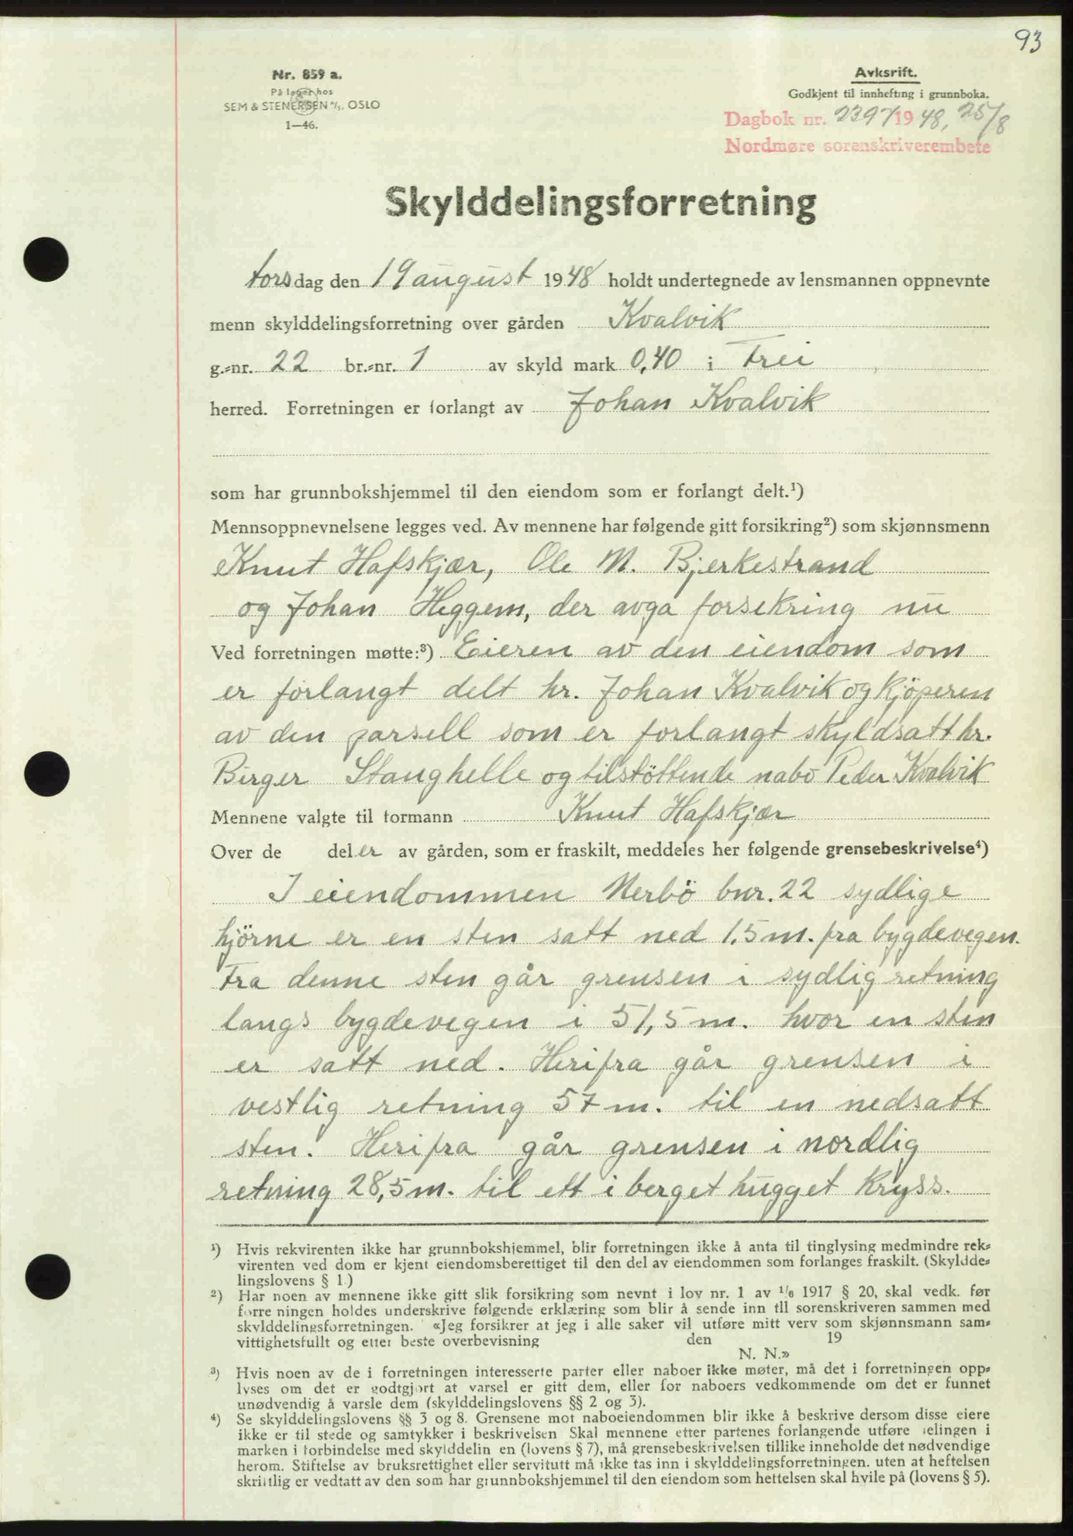 93
Nr. 859 a.
På lager hos
SEM & STENERSEN A/S. OSLO
1—46.
Avksrift.
Godkjent til innhefting i grunnboka.
Dagbok nr. 2397/1948, 25/8
Nordmøre sorenskriverembete
Skylddelingsforretning
torsdag den 19 august 1948 holdt undertegnede av lensmannen oppnevnte
menn skylddelingsforretning over gården Kvalvik
g.-nr. 22 br.-nr. 1 av skyld mark 0,40 i Frei
herred. Forretningen er forlangt av Johan Kvalvik
som har grunnbokshjemmel til den eiendom som er forlangt delt.¹)
Mennsoppnevnelsene legges ved. Av mennene har følgende gitt forsikring²) som skjønnsmenn
Knut Hafskjær, Ole M. Bjerkestrand
og Johan Heggem, der avga forsekring nu
Ved forretningen møtte:³) Eieren av den eiendom som
er forlangt delt hr. Johan Kvalvik og kjöperen
av den parsell som er forlangt skyldsatt hr.
Birger Stanghelle og tilstöttende nabo Peder Kvalvik
Mennene valgte til formann Knut Hafskjær
Over de deler av gården, som er fraskilt, meddeles her følgende grensebeskrivelse⁴)
I eiendommen Nerbö bnr. 22 sydlige
hjörne er en sten satt ned 1.5 m. fra bygdevegen.
Fra denne sten går grensen i sydlig retning
langs bygdevegen i 51,5 m. hvor en sten
er satt ned. Herifra går grensen i
vestlig retning 57 m. til en nedsatt
sten. Herifra går grensen i nordlig
retning 28,5 m. til ett i berget hugget kryss.
¹) Hvis rekvirenten ikke har grunnbokshjemmel, blir forretningen ikke å anta til tinglysing medmindre rek-
virenten ved dom er kjent eiendomsberettiget til den del av eiendommen som forlanges fraskilt. (Skyldde-
lingslovens § 1.)
²) Har noen av mennene ikke gitt slik forsikring som nevnt i lov nr. 1 av 1/6 1917 § 20, skal vedk. før
forretningen holdes underskrive følgende erklæring som blir å sende inn til sorenskriveren sammen med
skylddelingsforretningen. «Jeg forsikrer at jeg i alle saker vil utføre mitt verv som skjønnsmann sam-
vittighetsfullt og etter beste overbevisning den 19
N. N.»
³) Hvis noen av de i forretningen interesserte parter eller naboer ikke møter, må det i forretningen opp-
lyses om det er godtgjort at varsel er gitt dem, eller for naboers vedkommende om det er funnet
unødvendig å varsle dem (skylddelingslovens §§ 2 og 3).
⁴) Se skylddelingslovens §§ 3 og 8. Grensene mot naboeiendommen blir ikke å beskrive dersom disse eiere
ikke er til stede og samtykker i beskrivelsen Skal mennene etter partenes forlangende utføre delingen i
marken i forbindelse med skylddelingen (lovens § 7), må grensebeskrivelsen tillike inneholde det nødvendige
herom. Stiftelse av bruksrettighet eller servitutt må ikke tas inn i skylddelingsforretningen. uten at heftelsen
skriftlig er vedtatt av den som har grunnbokshjemmel til den eiendom som heftelsen skal hvile på (lovens § 5).